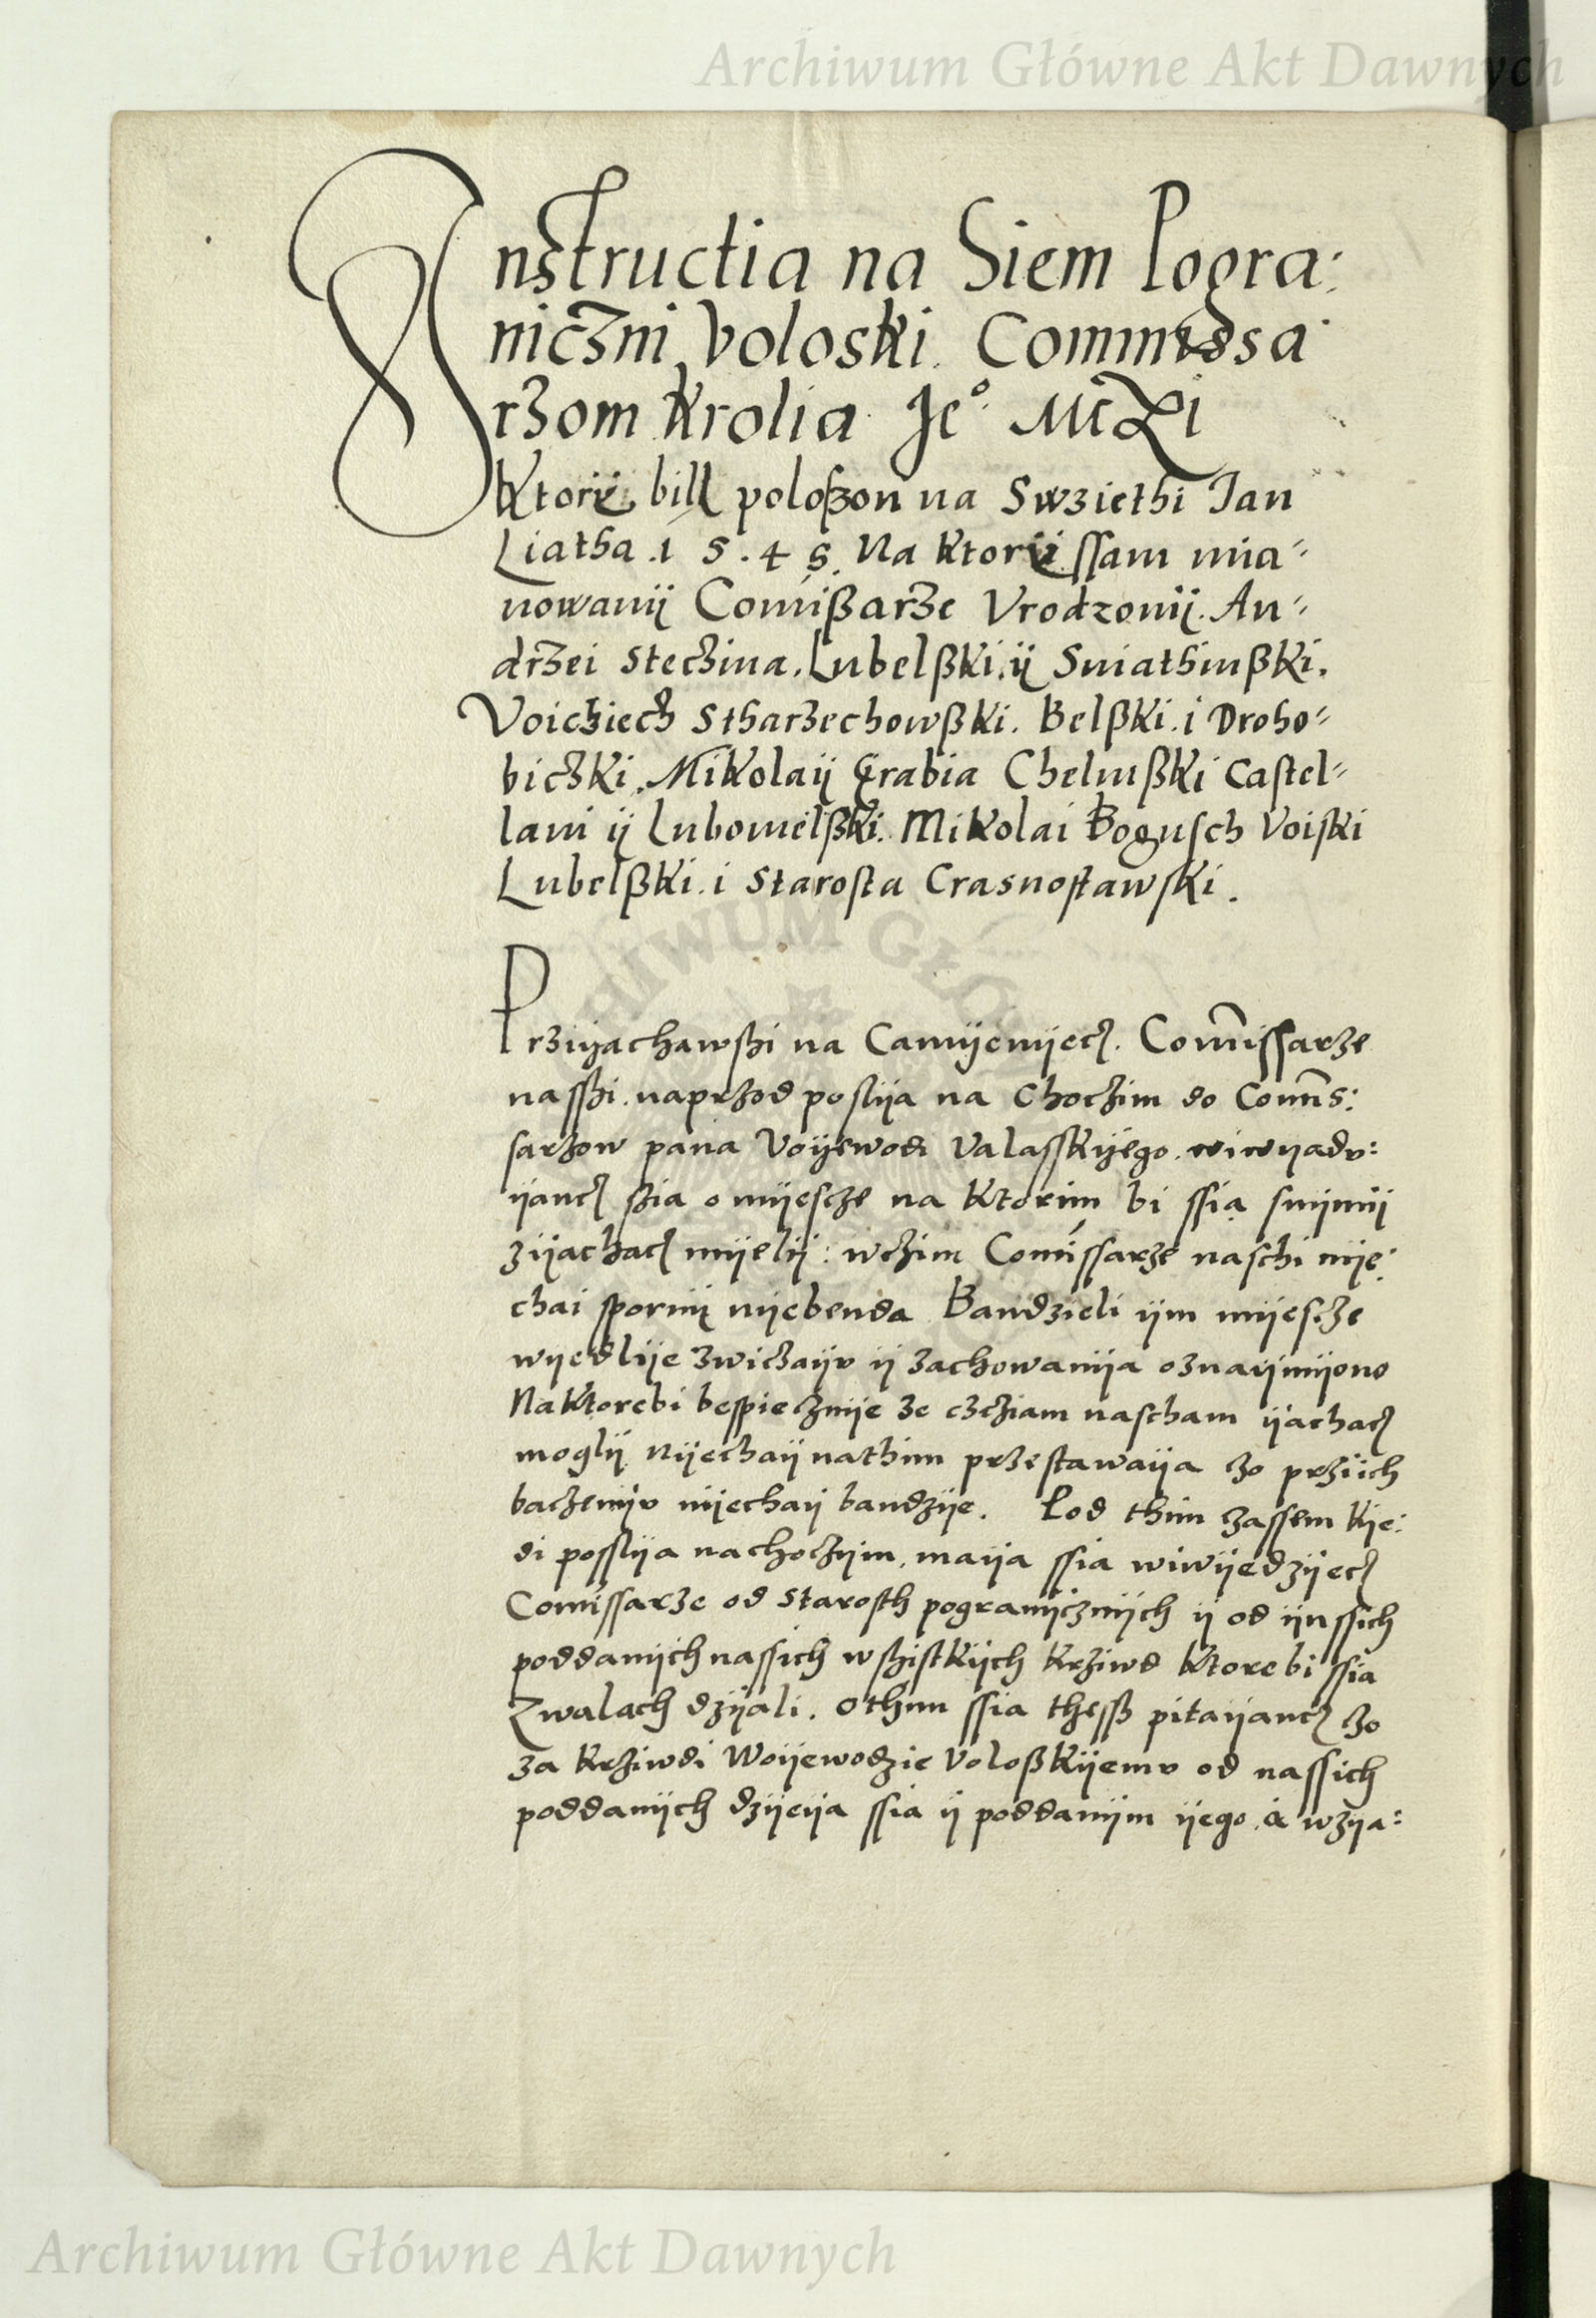 Archiwum Główne Akt Dawnych
Instructia na Siem Pogra:
niczni Voloski. Commissa
rzom Krolia Jeº Mczi
Ktorÿ bill poloßon na Swziethi Jan
Liatha .1 5 . 4 5. Na ktorÿ ssam mia-
nowanij Comißarze Vrodzonij. An-
drzei Steczina. Lubelßki. ij Sniathinßki.
Voicziech Stharzechowßki. Belßki. i Droho-
biczki. Mikolaij Grabia Chelmßki Castel-
lani ij Lubomelßki. Mikolai Bogusch Voiski
Lubelßki. i Starosta Crasnostawski.
Przijachawshi na Camijenijecz. Commissarze
nasshi. naprzod poslija na Choczim do Comis:
sarzow pana Voijewodi Valasskijego. wiwijadv:
ijancz shia o mijescze na ktorim bi ssia snijmij
zijachacz mijelij: wczim Comissarze naschi nije:
chai spornij nijebenda Bandzieli ijm mijescze
wijedlije zwiczaijv ij zachowanija oznaijmijono
Naktorebi bespiecznije ze czcziam nascham ijachacz
moglij Nijechaij nathim przestawaija czo prziich
baczenijv nijechaij bandzije. Pod thim zassem kije:
di posslija nachoczijm. maija ssia wiwijedzijecz
Comissarze od starosth pogranijcznijch ij od ijnssich
poddanijch nassich wshistkijch krziwd ktorebi ssia
Zwalach dzijali. othim ssia thessz pitaijancz czo
za krziwdi Woijewodzie Voloßkijemv od nassich
poddanijch dzijeija ssia ij poddanijm ijego. a wzija:
Archiwum Główne Akt Dawnych